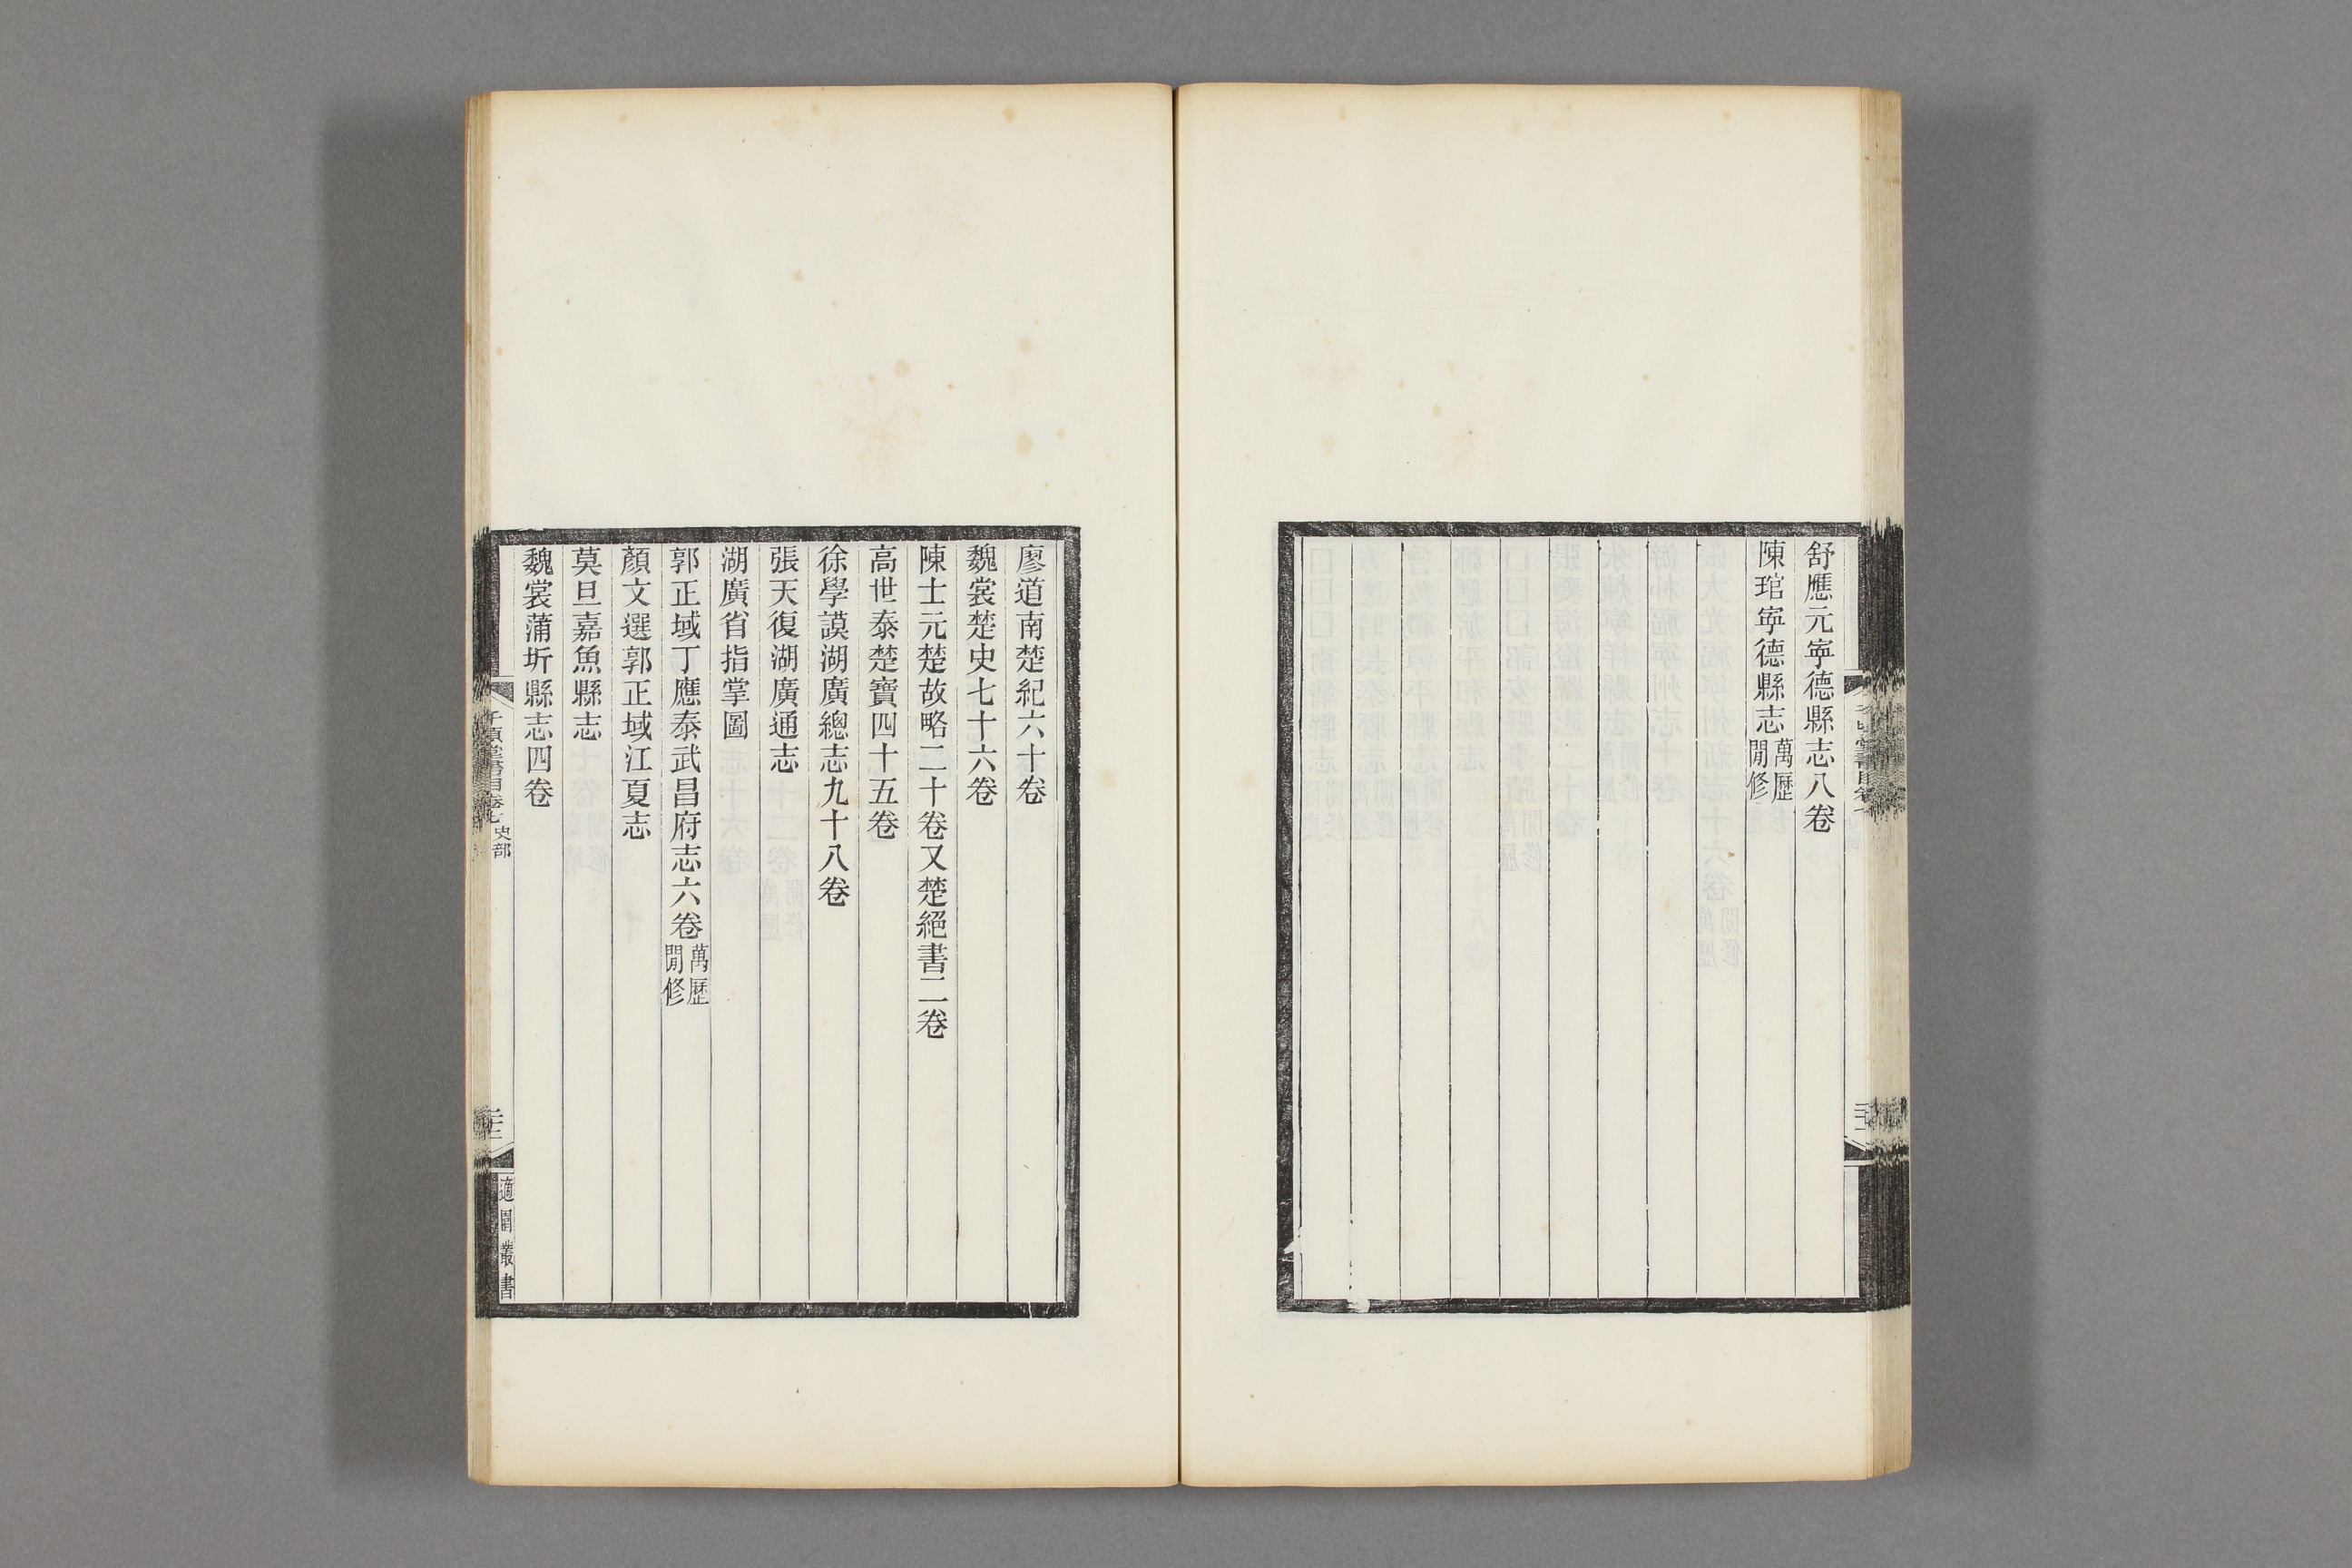 舒應元寧德縣志八卷
陳琯寧德縣志萬歷閒修
廖道南楚紀六十卷
魏裳楚史七十六卷
陳士元楚故略二十卷又楚絕書二卷
高世泰楚寶四十五卷
徐學謨湖廣總志九十八卷
張天復湖廣通志
湖廣省指掌圖
郭正域丁應泰武昌府志六卷萬歷閒修
顏文選郭正域江夏志
莫旦嘉魚縣志
魏裳蒲圻縣志四卷
千頃堂書目卷七 史部
適園叢書